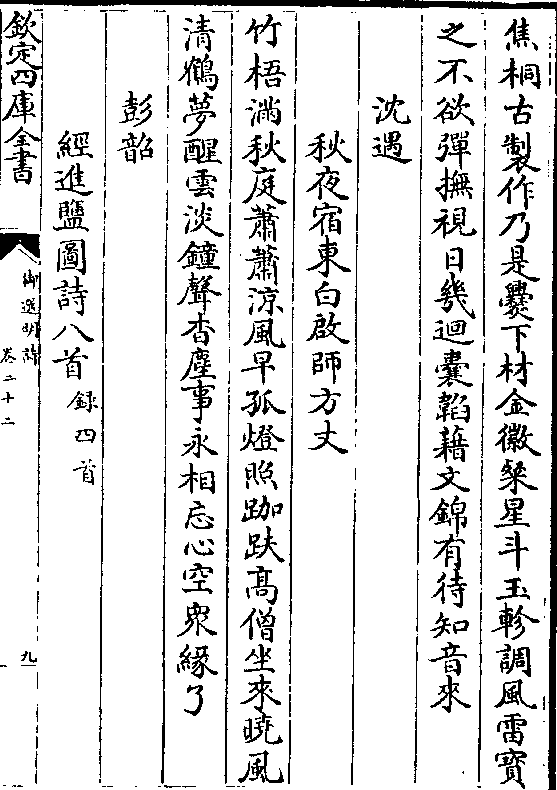 焦桐古製作乃是爨下材金徽粲星斗玉軫調風雷寳
之不欲彈撫視日幾迴囊韜藉文錦有待知音來
沈遇
秋夜宿東白啟師方丈
竹梧滿秋庭蕭蕭涼風早孤燈照跏趺髙僧坐來曉風
清鶴夢醒雲淡鐘聲杳塵事永相忘心空衆緣了
彭韶
經進鹽圖詩八首 録四首
欽定四庫全書
御選明詩
卷二十二
九